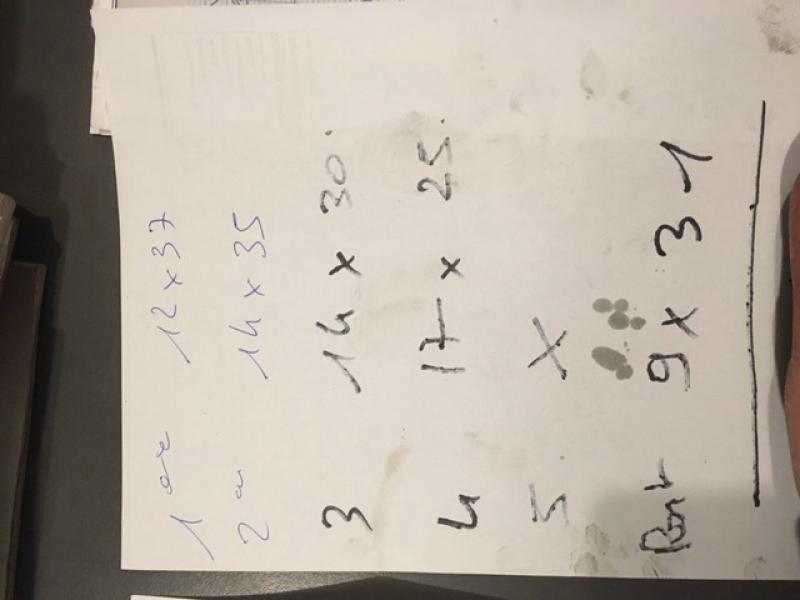 1 ère 12 x 37
2 en 14 x 35
3 14 x 30.
4 17 x 25.
5 X
9 x 31